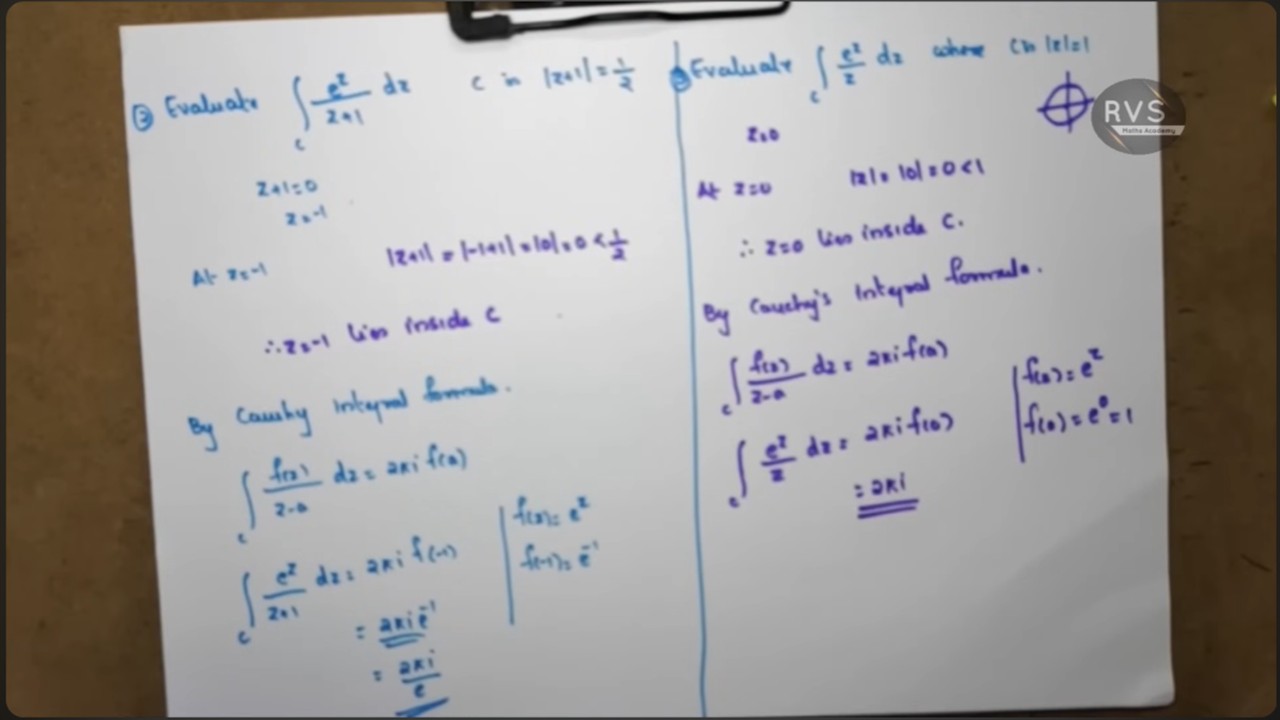 ② Evaluate ∫_C e^z/(z+1) dz C is |z+1| = 1/2
z+1=0
z=-1
At z=-1 |z+1| = |-1+1| = |0| = 0 < 1/2
∴ z=-1 lies inside C
By Cauchy Integral formula.
∫_C f(z)/(z-a) dz = 2πi f(a)
∫_C e^z/(z+1) dz = 2πi f(-1)
= 2πi e^-1
= 2πi/e
f(z) = e^z
f(-1) = e^-1
Evaluate ∫_C e^z/z dz where C is |z|=1
z=0
At z=0 |z| = |0| = 0 < 1
∴ z=0 lies inside C.
By Cauchy's Integral formula.
∫_C f(z)/(z-a) dz = 2πi f(a)
∫_C e^z/z dz = 2πi f(0)
= 2πi
f(z) = e^z
f(0) = e^0 = 1
RVS
Maths Academy